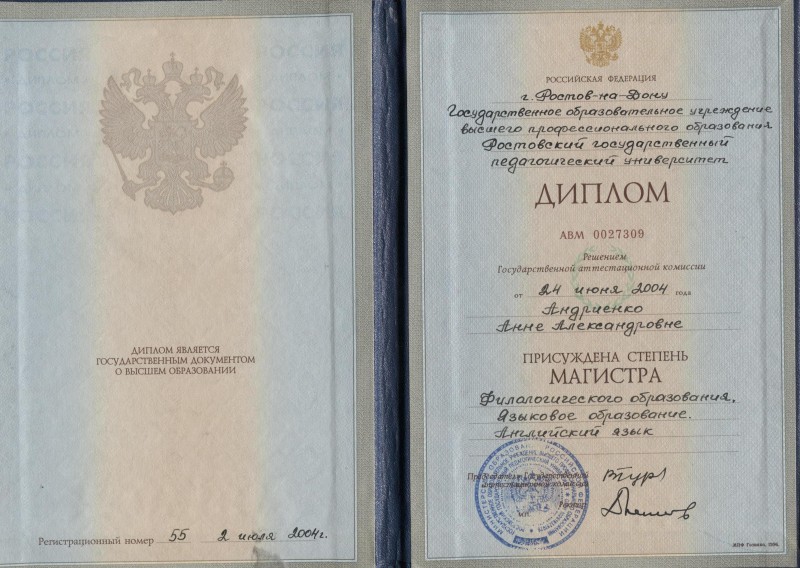 ДИПЛОМ ЯВЛЯЕТСЯ
ГОСУДАРСТВЕННЫМ ДОКУМЕНТОМ
О ВЫСШЕМ ОБРАЗОВАНИИ
Регистрационный номер 55 2 июля 2004г.
РОССИЙСКАЯ ФЕДЕРАЦИЯ
г. Ростов-на-Дону
Государственное образовательное учреждение
высшего профессионального образования
Ростовский государственный
педагогический университет
ДИПЛОМ
АВМ 0027309
Решением
Государственной аттестационной комиссии
от 24 июня 2004 года
Андриенко
Анне Александровне
ПРИСУЖДЕНА СТЕПЕНЬ
МАГИСТРА
Филологического образования.
Языковое образование.
Английский язык
Председатель Государственной
аттестационной комиссии
Ректор
М.П.